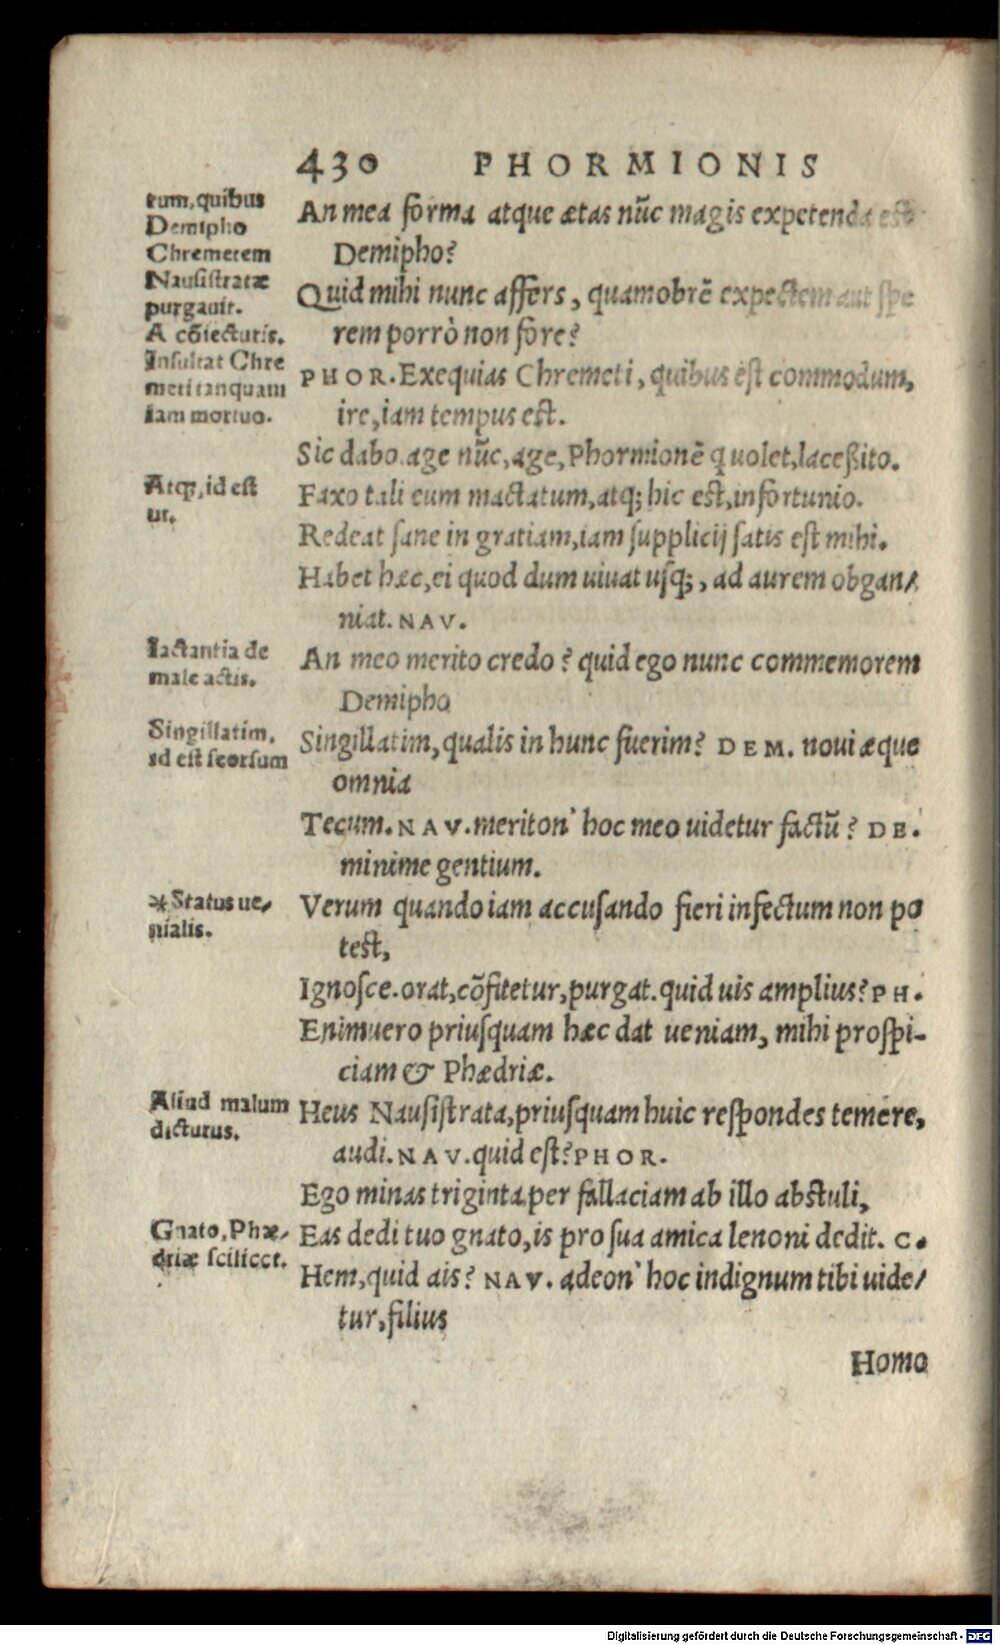 430 PHORMIONIS
tum, quibus
Demipho
Chremetem
Nausistratæ
purgauit.
A cõiecturis.
Insultat Chre
meti tanquam
iam mortuo.
Atq;, id est
ut.
Iactantia de
male actis.
Singillatim,
id est seorsum
*Status ue/
nialis.
Aliud malum
dicturus.
Gnato, Phæ/
driæ scilicet.
An mea forma atque ætas nũc magis expetenda est
Demipho?
Quid mihi nunc affers, quamobrẽ expectem aut spe
rem porrò non fore?
PHOR. Exequias Chremeti, quibus est commodum,
ire, iam tempus est.
Sic dabo. age nũc, age, Phormionẽ q uolet, laceßito.
Faxo tali eum mactatum, atq; hic est, infortunio.
Redeat sane in gratiam, iam supplicij satis est mihi.
Habet hæc, ei quod dum uiuat usq;, ad aurem obgan/
niat. NAV.
An meo merito credo? quid ego nunc commemorem
Demipho
Singillatim, qualis in hunc fuerim? DEM. noui æque
omnia
Tecum. NAV. meriton' hoc meo uidetur factũ? DE.
minime gentium.
Verum quando iam accusando fieri infectum non po
test,
Ignosce. orat, cõfitetur, purgat. quid uis amplius? PH.
Enimuero priusquam hæc dat ueniam, mihi prospi-
ciam & Phædriæ.
Heus Nausistrata, priusquam huic respondes temére,
audi. NAV. quid est? PHOR.
Ego minas triginta per fallaciam ab illo abstuli,
Eas dedi tuo gnato, is pro sua amica lenoni dedit. C.
Hem, quid ais? NAV. adeon' hoc indignum tibi uide/
tur, filius
Homo
Digitalisierung gefördert durch die Deutsche Forschungsgemeinschaft - DFG